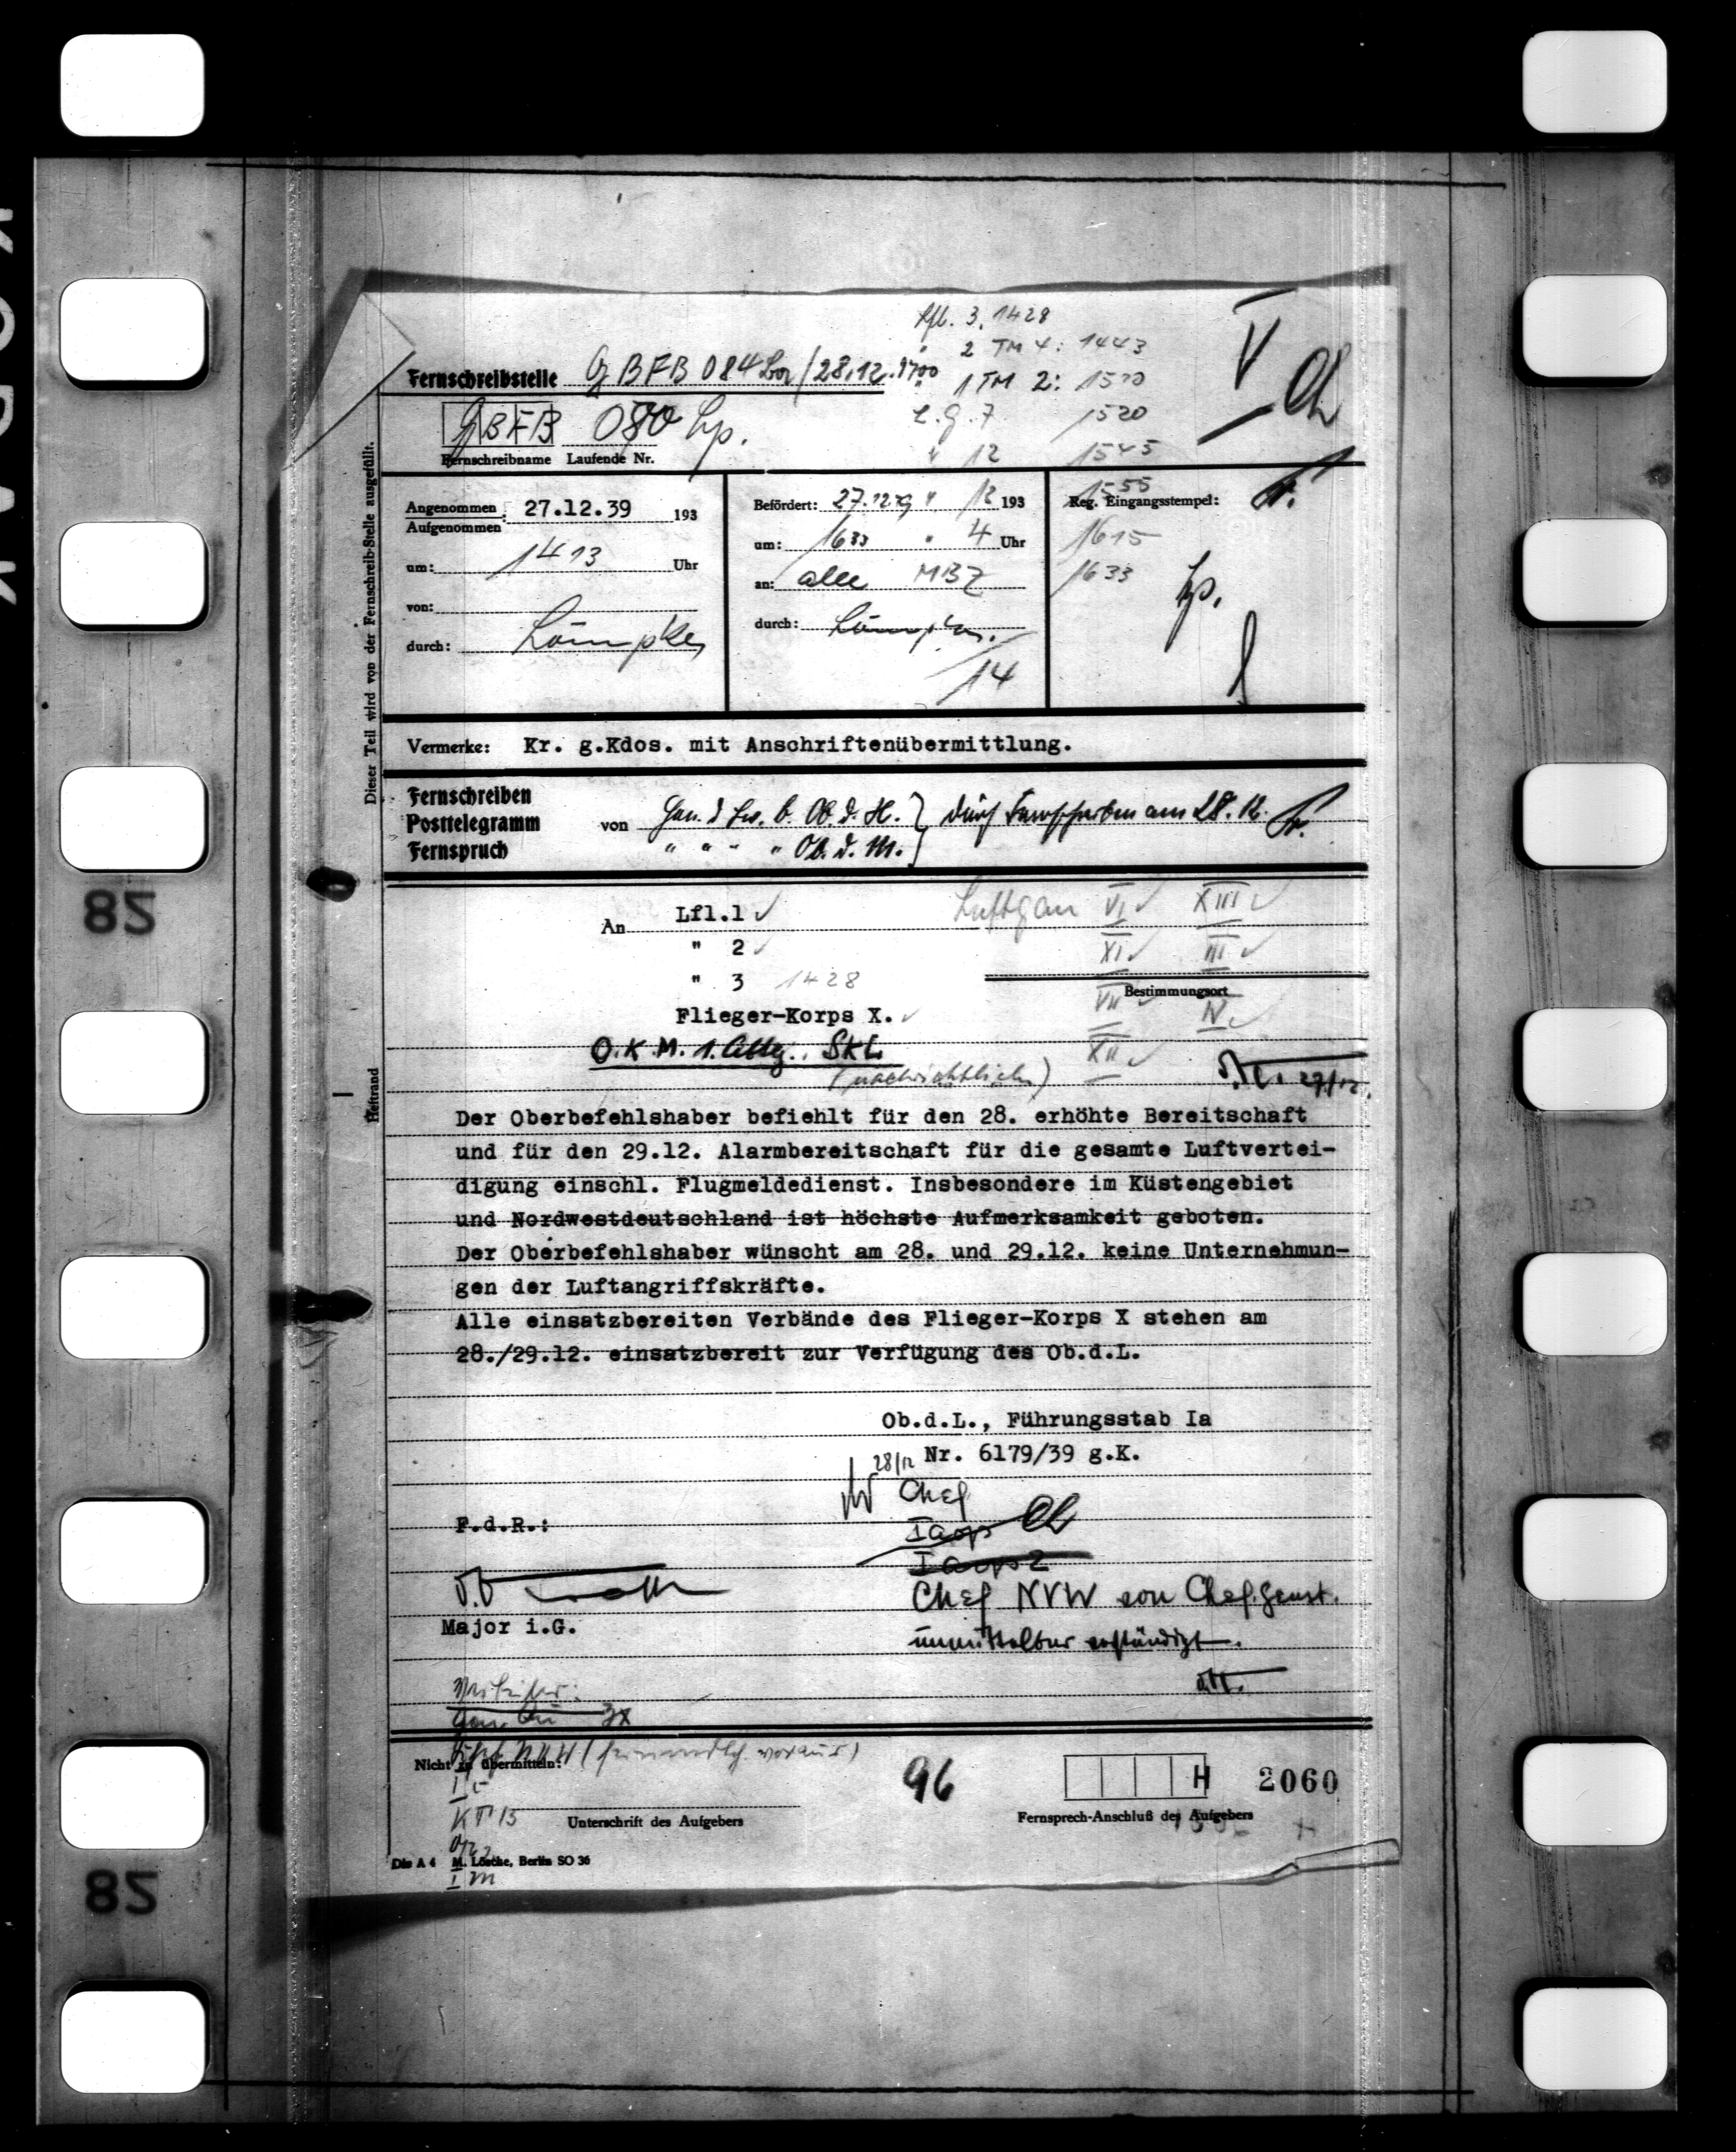 Lfl. 3. 1428
" 2 TM 4: 1443
Fernschreibstelle GBFB 084 /28.12. 1700
" 1 TM 2: 1510
L.G. 7 1520
GBFB 080
" 12 1545
Fernschreibname Laufende Nr.
Dieser Teil wird von der Fernschreib-Stelle ausgefüllt.
Angenommen
Aufgenommen: 27.12.39 193
um: 1413 Uhr
von:
durch: Lömpke
Befördert: 27.12.39 " 12 193
um: 1633 " 4 Uhr
an: alle MBZ
durch:
14
1555
Reg. Eingangsstempel:
1615
1633
Vermerke: Kr. g.Kdos. mit Anschriftenübermittlung.
Fernschreiben
Posttelegramm
Fernspruch
von Gen. d. Lw. b. Ob.d.H. } durch Fernschreiben am 28.12.
" " " " Ob.d.M.
An Lfl.1 ✓
" 2 ✓
" 3 1428
Flieger-Korps X. ✓
O.K.M. 1. Abtlg. SKL
(nachrichtlich)
Luftgau VI ✓ XIII ✓
XI ✓ III ✓
Bestimmungsort
VII ✓ IV ✓
XII ✓
27/12.
Heftrand
Der Oberbefehlshaber befiehlt für den 28. erhöhte Bereitschaft
und für den 29.12. Alarmbereitschaft für die gesamte Luftvertei-
digung einschl. Flugmeldedienst. Insbesondere im Küstengebiet
und Nordwestdeutschland ist höchste Aufmerksamkeit geboten.
Der Oberbefehlshaber wünscht am 28. und 29.12. keine Unternehmun-
gen der Luftangriffskräfte.
Alle einsatzbereiten Verbände des Flieger-Korps X stehen am
28./29.12. einsatzbereit zur Verfügung des Ob.d.L.
Ob.d.L., Führungsstab Ia
28/12 Nr. 6179/39 g.K.
Chef
Ia op
Ia op 2
F.d.R.:
Major i.G.
Chef NVW von Chef Genst.
unmittelbar verständigt.
Verteiler:
Nicht zu übermitteln:
Chef NVW (fernmdlch. voraus)
Ic
KTB
Unterschrift des Aufgebers
96
H 2060
Fernsprech-Anschluß des Aufgebers
Din A 4 M. Lösche, Berlin SO 36
I m
82
82